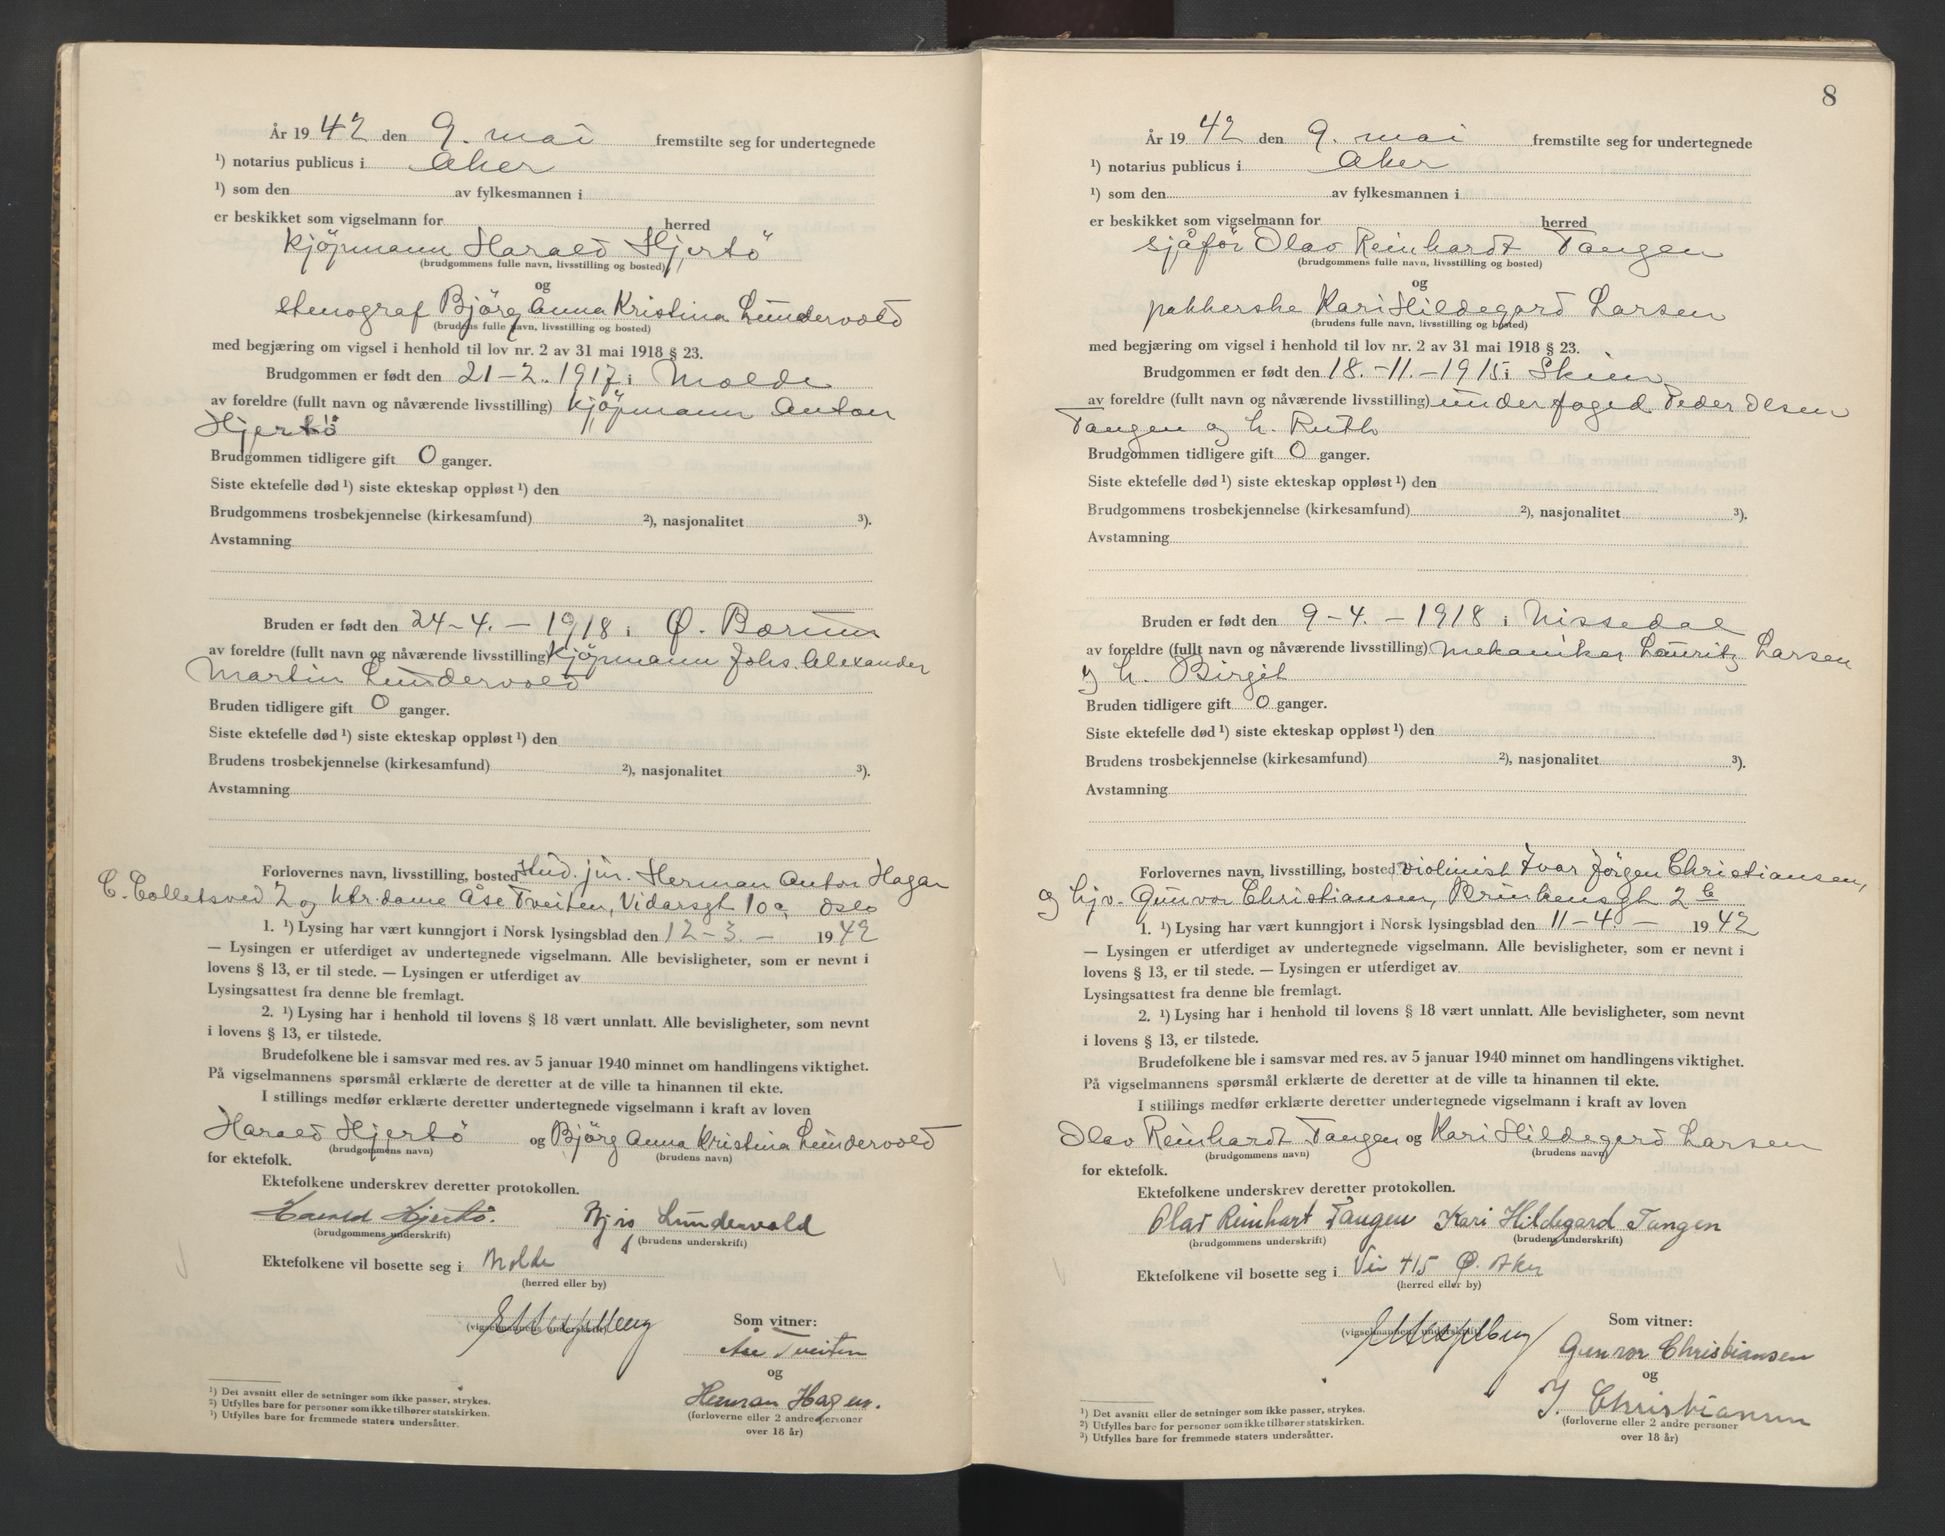 År 1942 den 9. mai fremstilte seg for undertegnede
¹) notarius publicus i Aker
¹) som den av fylkesmannen i
er beskikket som vigselmann for herred
kjöpmann Harald Hjertö
(brudgommens fulle navn, livsstilling og bosted)
og
stenograf Björg Anna Kristina Lundervold
(brudens fulle navn, livsstilling og bosted)
med begjæring om vigsel i henhold til lov nr. 2 av 31 mai 1918 § 23.
Brudgommen er født den 21-2.-1917 i Molde
av foreldre (fullt navn og nåværende livsstilling) kjöpmann Anton
Hjertö
Brudgommen tidligere gift 0 ganger.
Siste ektefelle død ¹) siste ekteskap oppløst ¹) den
Brudgommens trosbekjennelse (kirkesamfund) ²), nasjonalitet ³).
Avstamning
Bruden er født den 24-4.-1918 i Ø. Bærum
av foreldre (fullt navn og nåværende livsstilling) kjöpmann Johs. Alexander
Martin Lundervold
Bruden tidligere gift 0 ganger.
Siste ektefelle død ¹) siste ekteskap oppløst ¹) den
Brudens trosbekjennelse (kirkesamfund) ²), nasjonalitet ³).
Avstamning
Forlovernes navn, livsstilling, bosted Stud. jur. Herman Anton Hagen
C. Colletsvei 2 og ktr.dame Åse Tveiten, Vidarsgt 10a Oslo
1. ¹) Lysing har vært kunngjort i Norsk lysingsblad den 12-3.- 1942
— Lysingen er utferdiget av undertegnede vigselmann. Alle bevisligheter, som er nevnt i
lovens § 13, er til stede. — Lysingen er utferdiget av
Lysingsattest fra denne ble fremlagt.
2. ¹) Lysing har i henhold til lovens § 18 vært unnlatt. Alle bevisligheter, som nevnt
i lovens § 13, er tilstede.
Brudefolkene ble i samsvar med res. av 5 januar 1940 minnet om handlingens viktighet.
På vigselmannens spørsmål erklærte de deretter at de ville ta hinannen til ekte.
I stillings medfør erklærte deretter undertegnede vigselmann i kraft av loven
Harald Hjertö og Björg Anna Kristina Lundervold
(brudgommens navn) (brudens navn)
for ektefolk.
Ektefolkene underskrev deretter protokollen.
Harald Hjertö. Bjørg Lundervold
(brudgommens underskrift) (brudens underskrift)
Ektefolkene vil bosette seg i Molde
(herred eller by)
(vigselmannens underskrift)
Som vitner:
Åse Tveiten
og
Herman Hagen.
(forloverne eller 2 andre personer
over 18 år)
¹) Det avsnitt eller de setninger som ikke passer, strykes.
²) Utfylles bare for personer som ikke tilhører statskirken.
³) Utfylles bare for fremmede staters undersåtter.
8
År 1942 den 9. mai fremstilte seg for undertegnede
¹) notarius publicus i Aker
¹) som den av fylkesmannen i
er beskikket som vigselmann for herred
sjåfør Olav Reinhardt Tangen
(brudgommens fulle navn, livsstilling og bosted)
og
pakkerske Kari Hildegard Larsen
(brudens fulle navn, livsstilling og bosted)
med begjæring om vigsel i henhold til lov nr. 2 av 31 mai 1918 § 23.
Brudgommen er født den 18.-11.-1915 i Skien
av foreldre (fullt navn og nåværende livsstilling) underfoged Peder Olsen
Tangen og h. Ruth
Brudgommen tidligere gift 0 ganger.
Siste ektefelle død ¹) siste ekteskap oppløst ¹) den
Brudgommens trosbekjennelse (kirkesamfund) ²), nasjonalitet ³).
Avstamning
Bruden er født den 9-4.-1918 i Nissedal
av foreldre (fullt navn og nåværende livsstilling) mekaniker Lauritz Larsen
og h. Birgit
Bruden tidligere gift 0 ganger.
Siste ektefelle død ¹) siste ekteskap oppløst ¹) den
Brudens trosbekjennelse (kirkesamfund) ²), nasjonalitet ³).
Avstamning
Forlovernes navn, livsstilling, bosted violinist Ivar Jörgen Christiansen,
og hjv. Gunvor Christiansen, Brinkensgt 2 b
1. ¹) Lysing har vært kunngjort i Norsk lysingsblad den 11-4.- 1942
— Lysingen er utferdiget av undertegnede vigselmann. Alle bevisligheter, som er nevnt i
lovens § 13, er til stede. — Lysingen er utferdiget av
Lysingsattest fra denne ble fremlagt.
2. ¹) Lysing har i henhold til lovens § 18 vært unnlatt. Alle bevisligheter, som nevnt
i lovens § 13, er tilstede.
Brudefolkene ble i samsvar med res. av 5 januar 1940 minnet om handlingens viktighet.
På vigselmannens spørsmål erklærte de deretter at de ville ta hinannen til ekte.
I stillings medfør erklærte deretter undertegnede vigselmann i kraft av loven
Olav Reinhardt Tangen og Kari Hildegard Larsen
(brudgommens navn) (brudens navn)
for ektefolk.
Ektefolkene underskrev deretter protokollen.
Olav Reinhart Tangen Kari Hildegard Tangen
(brudgommens underskrift) (brudens underskrift)
Ektefolkene vil bosette seg i Vei 415 Ø. Aker
(herred eller by)
(vigselmannens underskrift)
Som vitner:
Gunvor Christiansen
og
I. Christiansen
(forloverne eller 2 andre personer
over 18 år)
¹) Det avsnitt eller de setninger som ikke passer, strykes.
²) Utfylles bare for personer som ikke tilhører statskirken.
³) Utfylles bare for fremmede staters undersåtter.